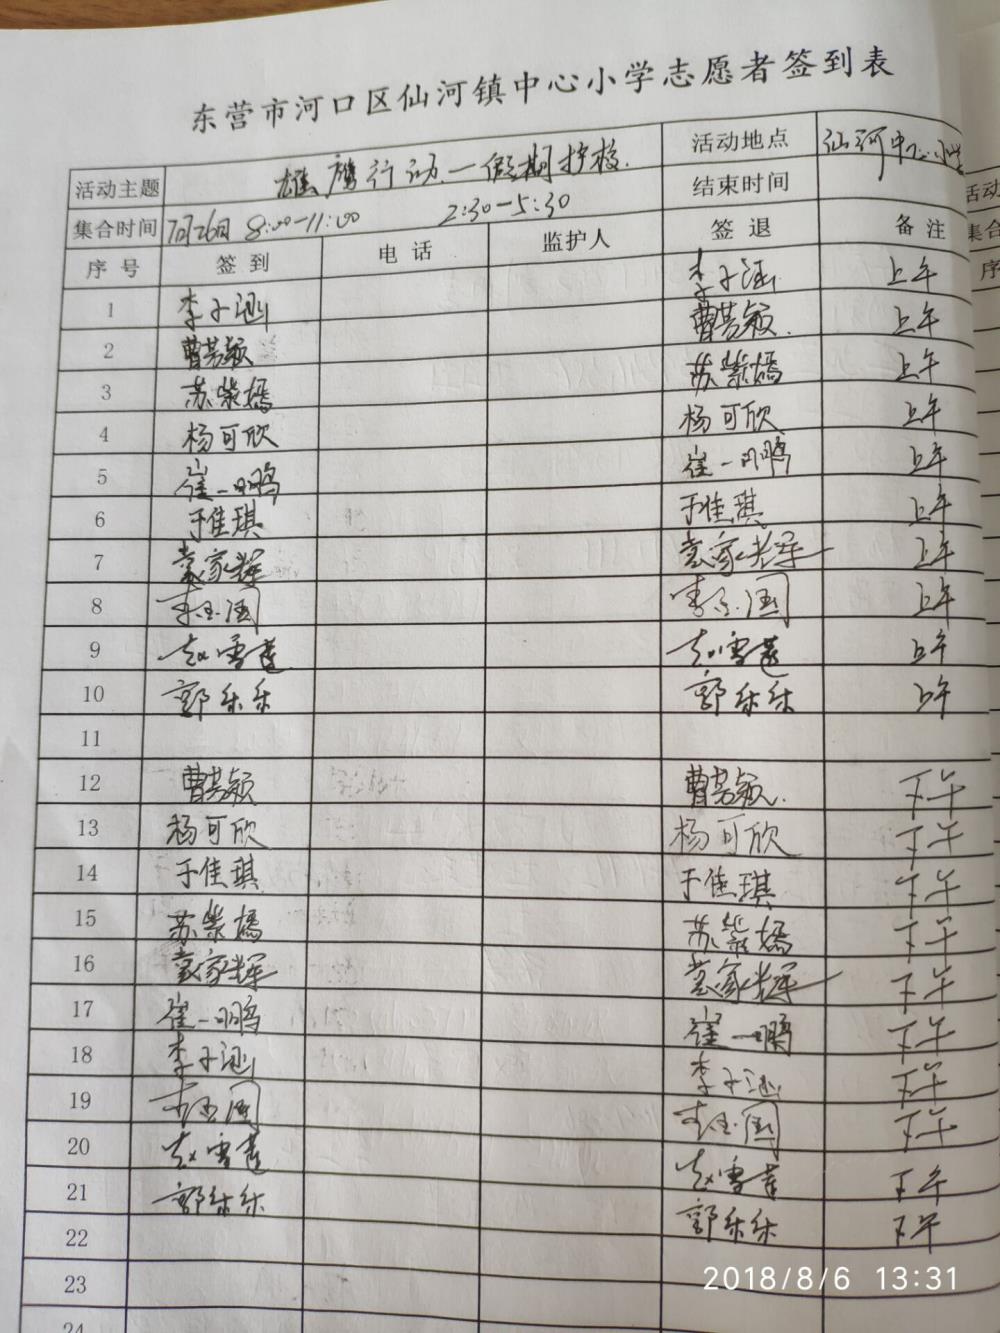 东营市河口区仙河镇中心小学志愿者签到表
活动主题 雄鹰行动—假期护校. 活动地点 仙河中心小学
集合时间 7月26日 8:00-11:00 2:30-5:30 结束时间
序号 签到 电话 监护人 签退 备注
1 李子涵 李子涵 上午
2 曹芳颖 曹芳颖. 上午
3 苏紫嫣 苏紫嫣 上午
4 杨可欣 杨可欣 上午
5 崔一鹏 崔一鹏 上午
6 于佳琪 于佳琪 上午
7 袁家辉 袁家辉 上午
8 上午
9 赵雪莲 赵雪莲 上午
10 郭乐乐 郭乐乐 上午
11
12 曹芳颖 曹芳颖. 下午
13 杨可欣 杨可欣 下午
14 于佳琪 于佳琪 下午
15 苏紫嫣 苏紫嫣 下午
16 袁家辉 袁家辉 下午
17 崔一鹏 崔一鹏 下午
18 李子涵 李子涵 下午
19 下午
20 赵雪莲 赵雪莲 下午
21 郭乐乐 郭乐乐 下午
22
23
24
活动
集合
序
2018/8/6 13:31